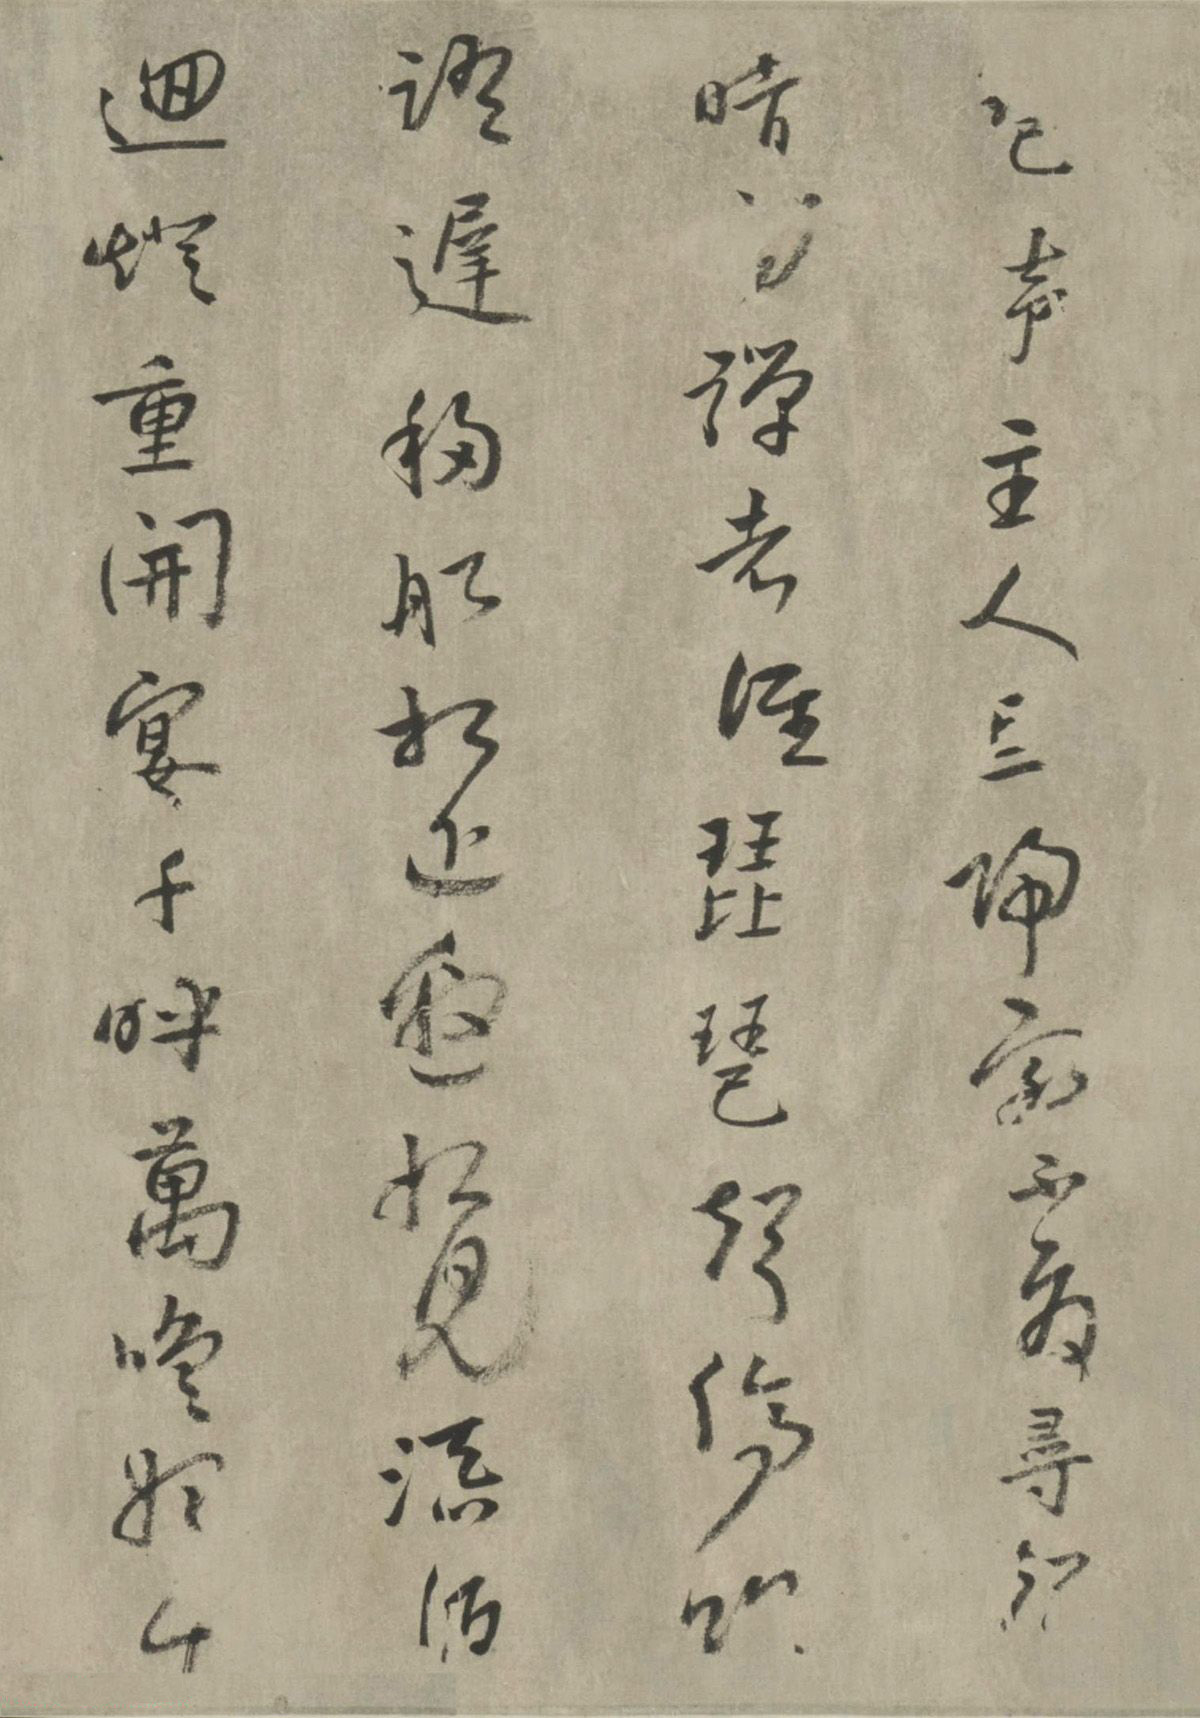 琶声主人忘歸客不發尋聲
暗問彈者誰琵琶聲停欲
語遲移船相近邀相見添酒
迴燈重開宴千呼萬喚始出